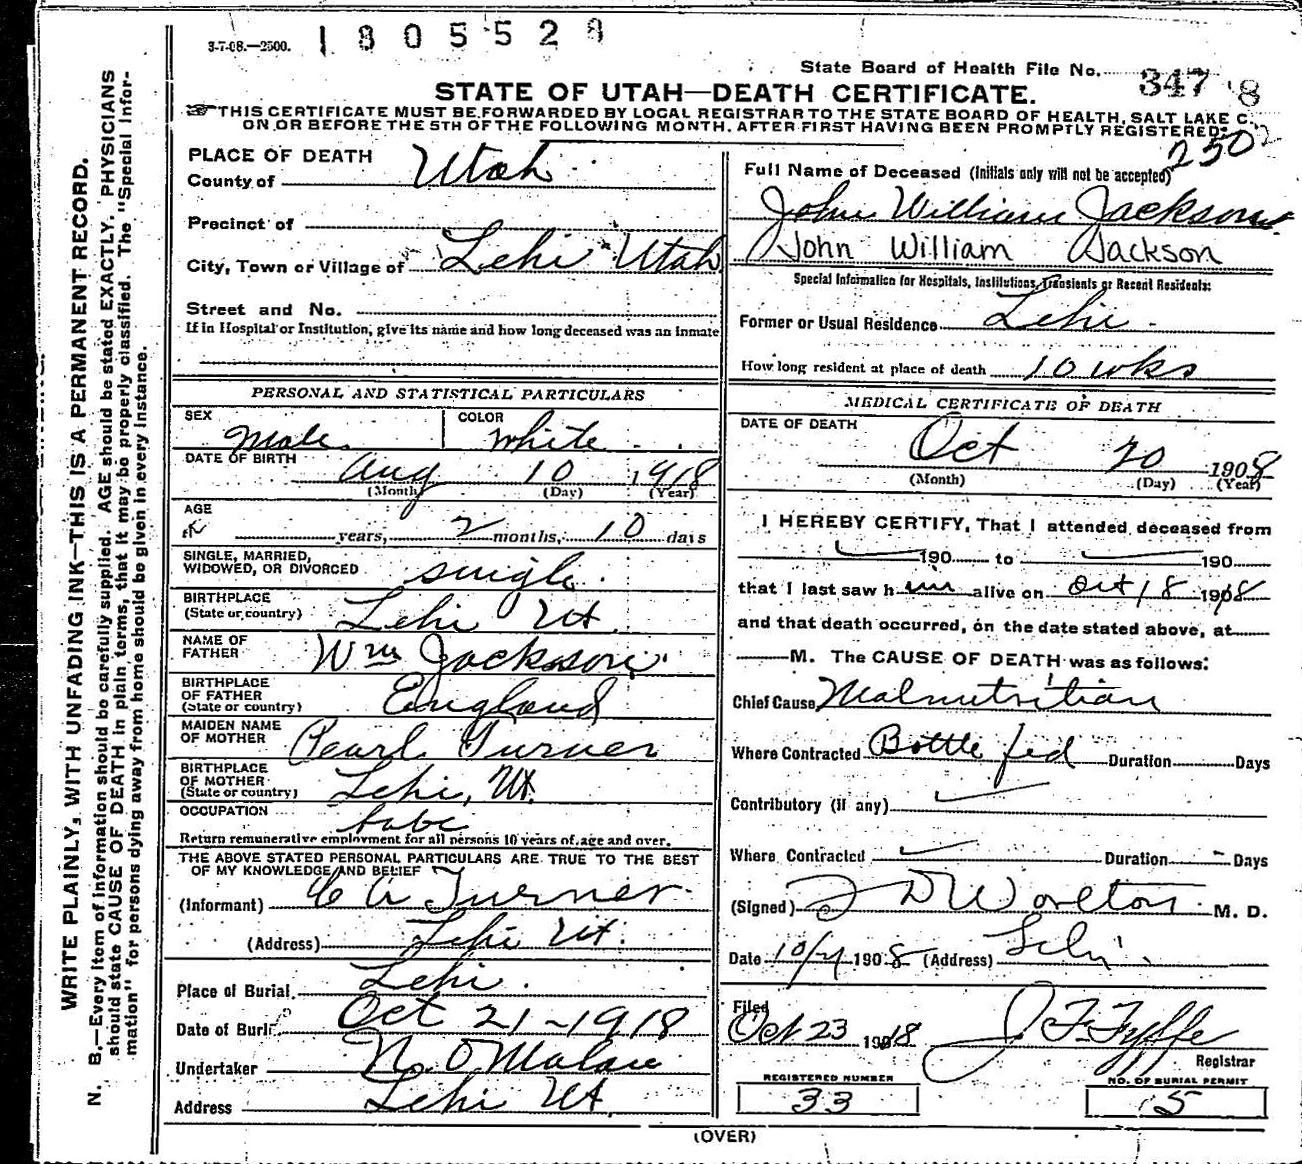 3-7-08.—2500.
1805528
State Board of Health File No. 347 8
STATE OF UTAH—DEATH CERTIFICATE.
THIS CERTIFICATE MUST BE FORWARDED BY LOCAL REGISTRAR TO THE STATE BOARD OF HEALTH, SALT LAKE C.
ON OR BEFORE THE 5TH OF THE FOLLOWING MONTH, AFTER FIRST HAVING BEEN PROMPTLY REGISTERED.
2502
WRITE PLAINLY, WITH UNFADING INK—THIS IS A PERMANENT RECORD.
N. B.—Every item of information should be carefully supplied. AGE should be stated EXACTLY. PHYSICIANS
should state CAUSE OF DEATH in plain terms, that it may be properly classified. The "Special Infor-
mation" for persons dying away from home should be given in every instance.
PLACE OF DEATH
County of Utah
Precinct of
City, Town or Village of Lehi Utah
Street and No.
If in Hospital or Institution, give its name and how long deceased was an inmate
PERSONAL AND STATISTICAL PARTICULARS
SEX Male
COLOR White
DATE OF BIRTH Aug 10 1918
(Month) (Day) (Year)
AGE
years, 2 months, 10 days
SINGLE, MARRIED,
WIDOWED, OR DIVORCED single
BIRTHPLACE
(State or country) Lehi Ut
NAME OF
FATHER Wm Jackson
BIRTHPLACE
OF FATHER
(State or country) England
MAIDEN NAME
OF MOTHER Pearl Turner
BIRTHPLACE
OF MOTHER
(State or country) Lehi, Ut.
OCCUPATION babe
Return remunerative employment for all persons 10 years of age and over.
THE ABOVE STATED PERSONAL PARTICULARS ARE TRUE TO THE BEST
OF MY KNOWLEDGE AND BELIEF
(Informant) C A Turner
(Address) Lehi Ut.
Place of Burial Lehi.
Date of Burial Oct 21-1918
Undertaker N. O Malan
Address Lehi Ut.
Full Name of Deceased (Initials only will not be accepted)
John William Jackson
John William Jackson
Special Information for Hospitals, Institutions, Transients or Recent Residents:
Former or Usual Residence Lehi.
How long resident at place of death 10 wks
MEDICAL CERTIFICATE OF DEATH
DATE OF DEATH
Oct 20 1908
(Month) (Day) (Year)
I HEREBY CERTIFY, That I attended deceased from
190 to 190
that I last saw him alive on Oct 18 1918
and that death occurred, on the date stated above, at
M. The CAUSE OF DEATH was as follows:
Chief Cause Malnutrition
Where Contracted Bottle fed Duration Days
Contributory (if any)
Where Contracted Duration Days
(Signed) D Worlton M. D.
Date 10/21 1908 (Address) Lehi.
Filed
Oct 23 1918 J. F. Fyffe
Registrar
REGISTERED NUMBER
33
NO. OF BURIAL PERMIT
5
(OVER)